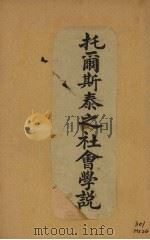 托爾斯泰之社會學説
301